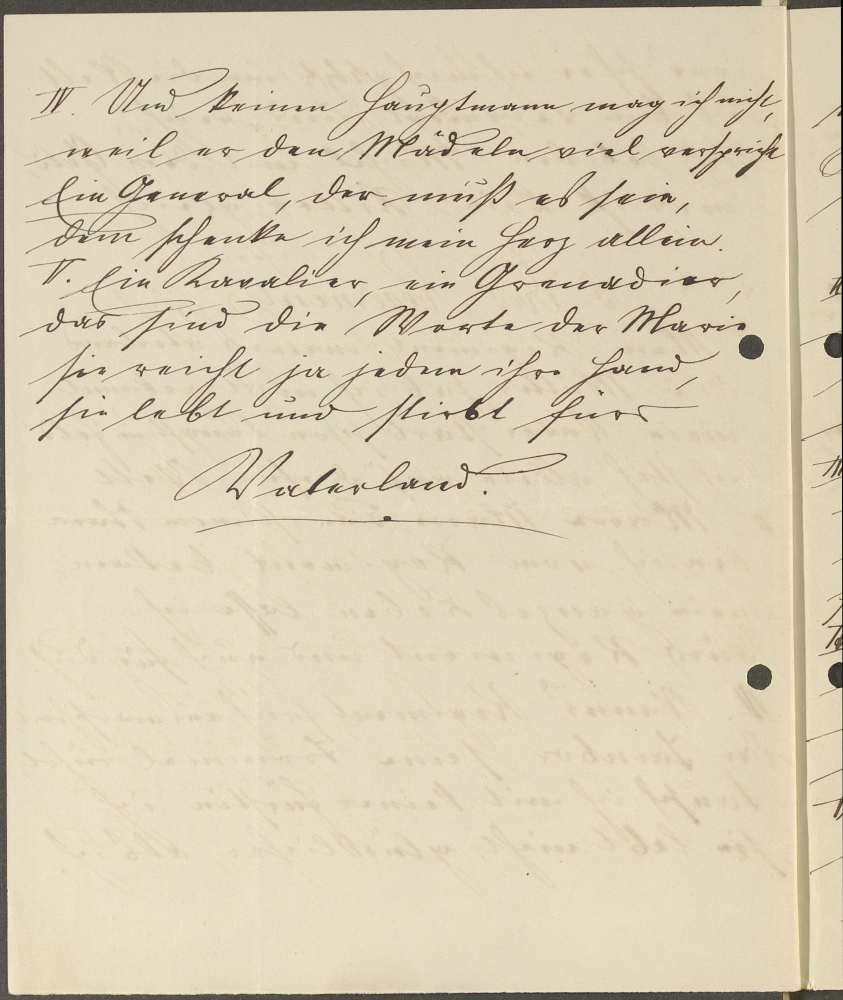 IV. Und keinen Hauptmann mag ich nicht,
weil er den Mädeln viel verspricht
Ein General, der muß es sein,
dem schenke ich mein Herz allein.
V. Ein Kavalier, ein Grenadier,
das sind die Worte der Marie
sie reicht ja jedem ihre Hand,
sie lebt und stirbt fürs
Vaterland.